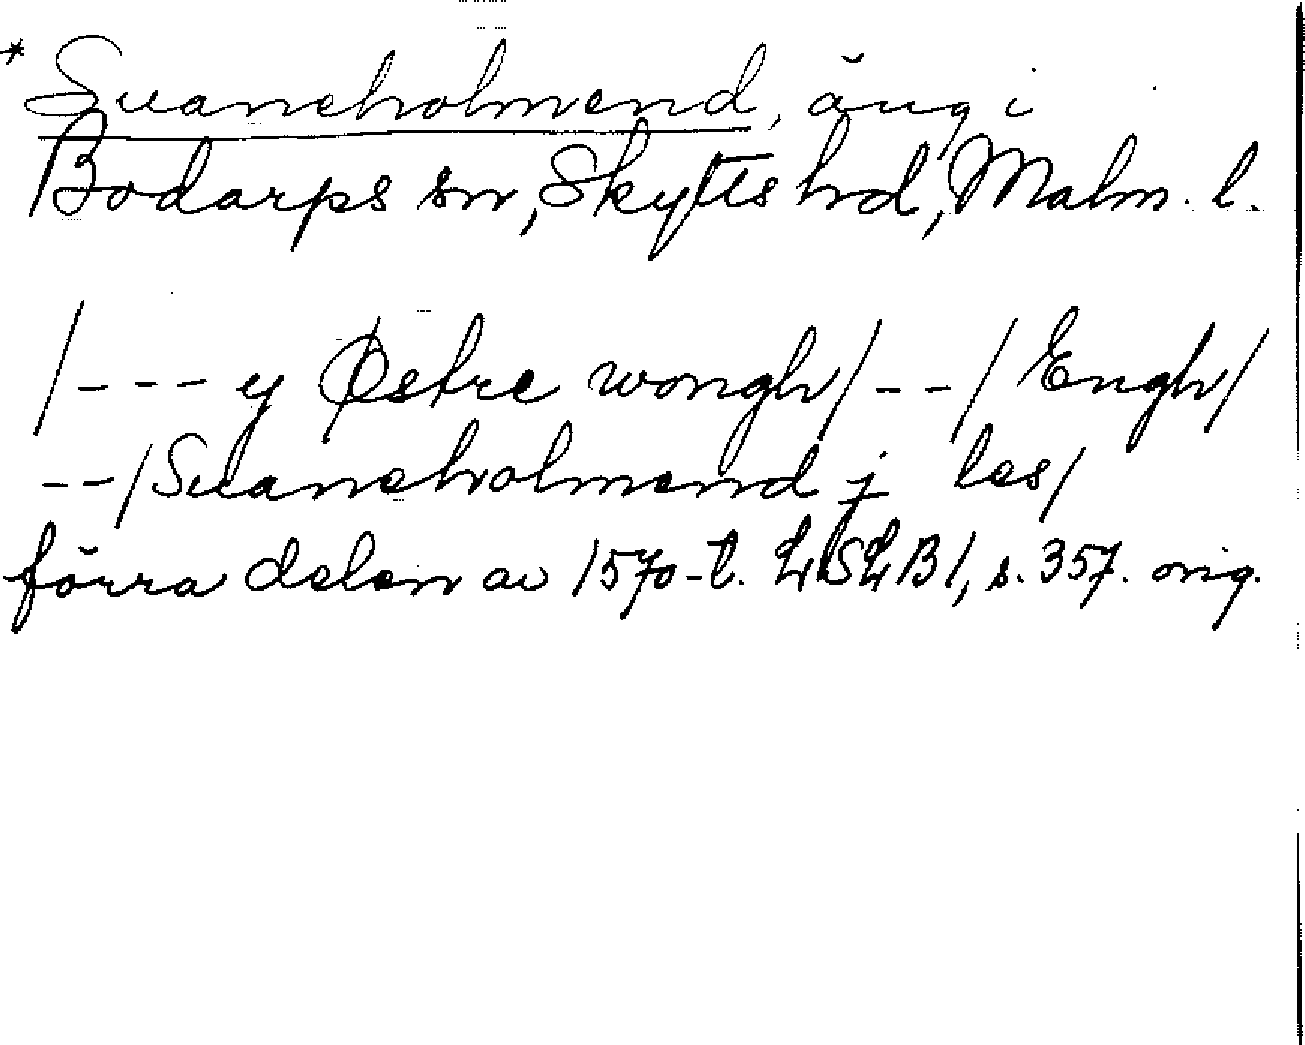 * Suaneholmend, äng i
Bodarps sn, Skytts hd, Malm. l.
/--- y Østre wongh/--/ Engh/
--/Suaneholmend j les/
förra delen av 1570-t. LSLB 1, s. 357. orig.